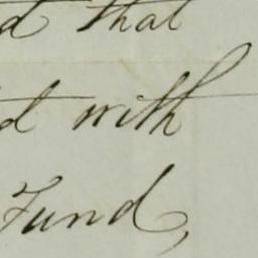 d that
d with
Fund,